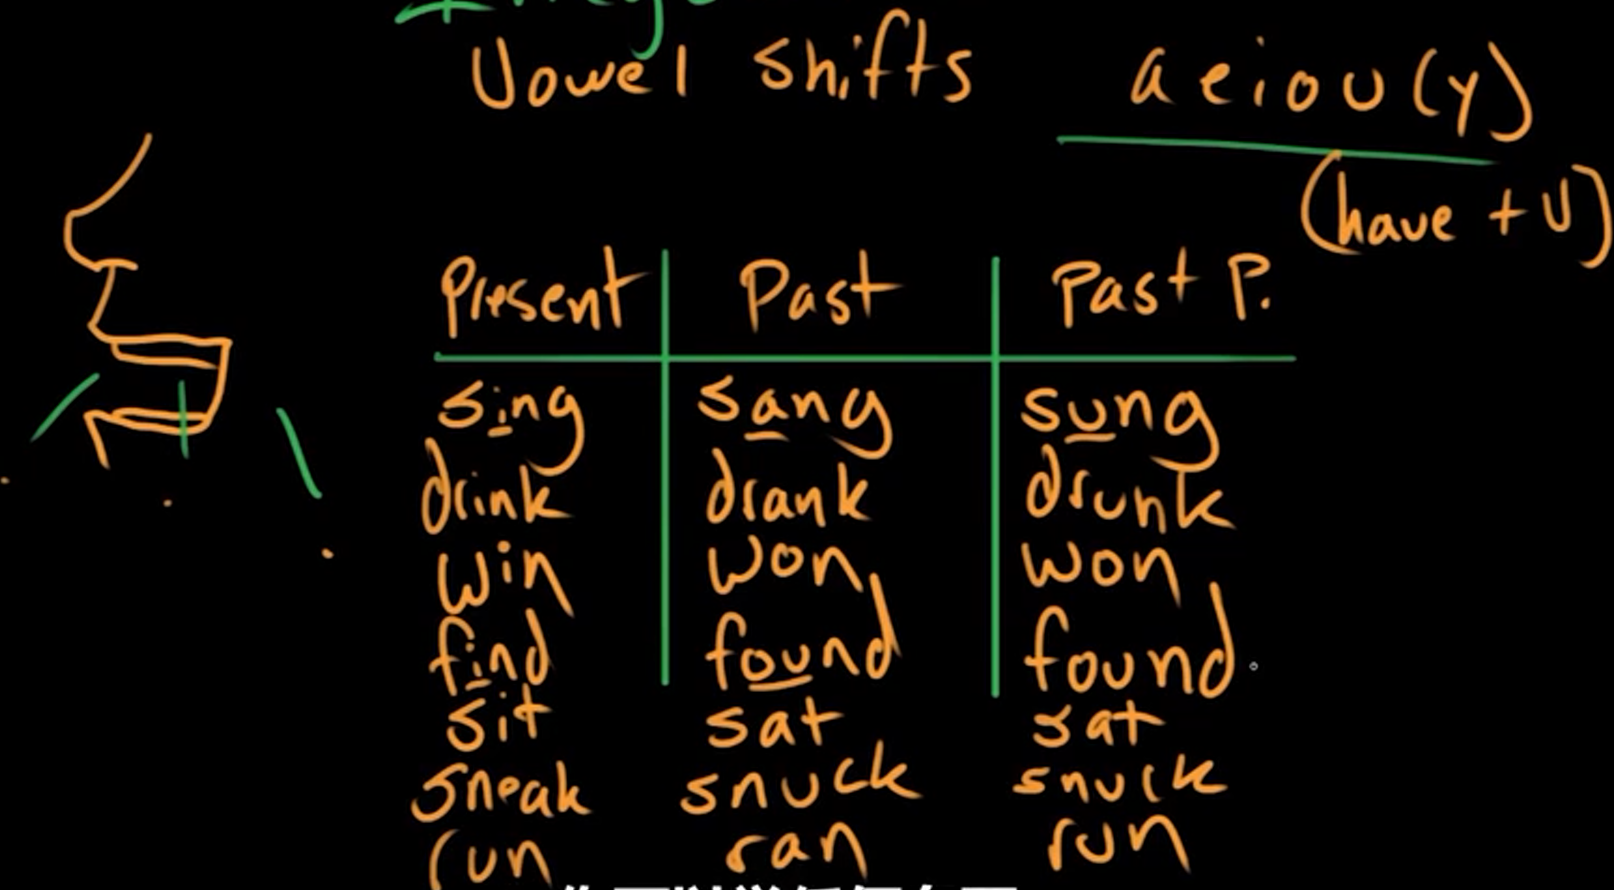 Vowel shifts a e i o u (y)
(have + V)
Present Past Past P.
sing sang sung
drink drank drunk
win won won
find found found
sit sat sat
sneak snuck snuck
run ran run